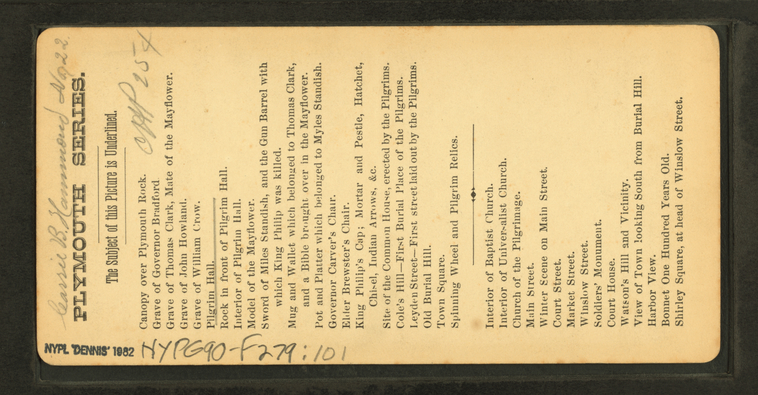 Carrie B. Hammond No 22
PLYMOUTH SERIES.
The Subject of this Picture is Underlined.
254
Canopy over Plymouth Rock.
Grave of Governor Bradford
Grave of Thomas Clark, Mate of the Mayflower.
Grave of John Howland.
Grave of William Crow.
Pilgrim Hall.
Rock in front of Pilgrim Hall.
Interior of Pilgrim Hall.
Model of the Mayflower.
Sword of Miles Standish, and the Gun Barrel with
which King Philip was killed.
Mug and Wallet which belonged to Thomas Clark,
and a Bible brought over in the Mayflower.
Pot and Platter which belonged to Myles Standish.
Governor Carver's Chair.
Elder Brewster's Chair.
King Philip's Cap; Mortar and Pestle, Hatchet,
Chisel, Indian Arrows, &c.
Site of the Common House, erected by the Pilgrims.
Cole's Hill—First Burial Place of the Pilgrims.
Leyden Street—First street laid out by the Pilgrims.
Old Burial Hill.
Town Square.
Spinning Wheel and Pilgrim Relics.
Interior of Baptist Church.
Interior of Universalist Church.
Church of the Pilgrimage.
Main Street.
Winter Scene on Main Street
Court Street.
Market Street.
Winslow Street.
Soldiers' Monument.
Court House.
Watson's Hill and Vicinity.
View of Town looking South from Burial Hill.
Harbor View.
Bonnet One Hundred Years Old.
Shirley Square, at head of Winslow Street.
NYPL "DENNIS" 1982
NYPG90-F279:101